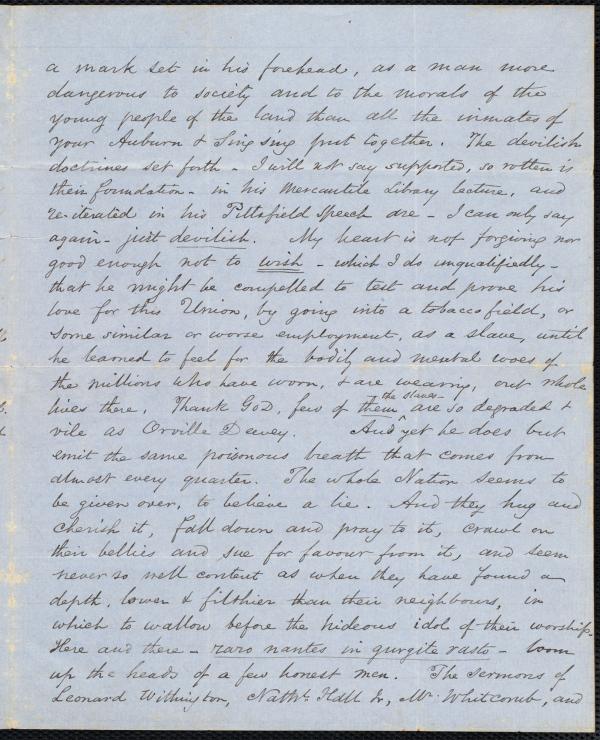 a mark set in his forehead, as a man more
dangerous to society and to the morals of the
young people of the land than all the inmates of
your Auburn & Sing Sing put together. The devilish
doctrines set forth - I will not say supported, so rotten is
their foundation - in his Mercantile Library lecture, and
re-iterated in his Pittsfield Speech are - I can only say
again - just devilish. My heart is not forgiving nor
good enough not to wish - which I do unqualifiedly -
that he might be compelled to test and prove his
love for this Union, by going into a tobacco field, or
some similar or worse employment, as a slave, until
he learned to feel for the bodily and mental woes of
the millions who have worn, & are wearing, out whole
lives there. Thank GOD, few of them are so degraded &
the slaves
vile as Orville Dewey. And yet he does but
emit the same poisonous breath that comes from
almost every quarter. The whole Nation seems to
be given over, to believe a lie. And they hug and
cherish it, fall down and pray to it, crawl on
their bellies and sue for favour from it, and seem
never so well content as when they have found a
depth, lower & filthier than their neighbours, in
which to wallow before the hideous idol of their worship.
Here and there - raro nantes in gurgite vasto - loom
up the heads of a few honest men. The sermons of
Leonard Withington, Nathl. Hall Jr, Mr. Whitcomb, and